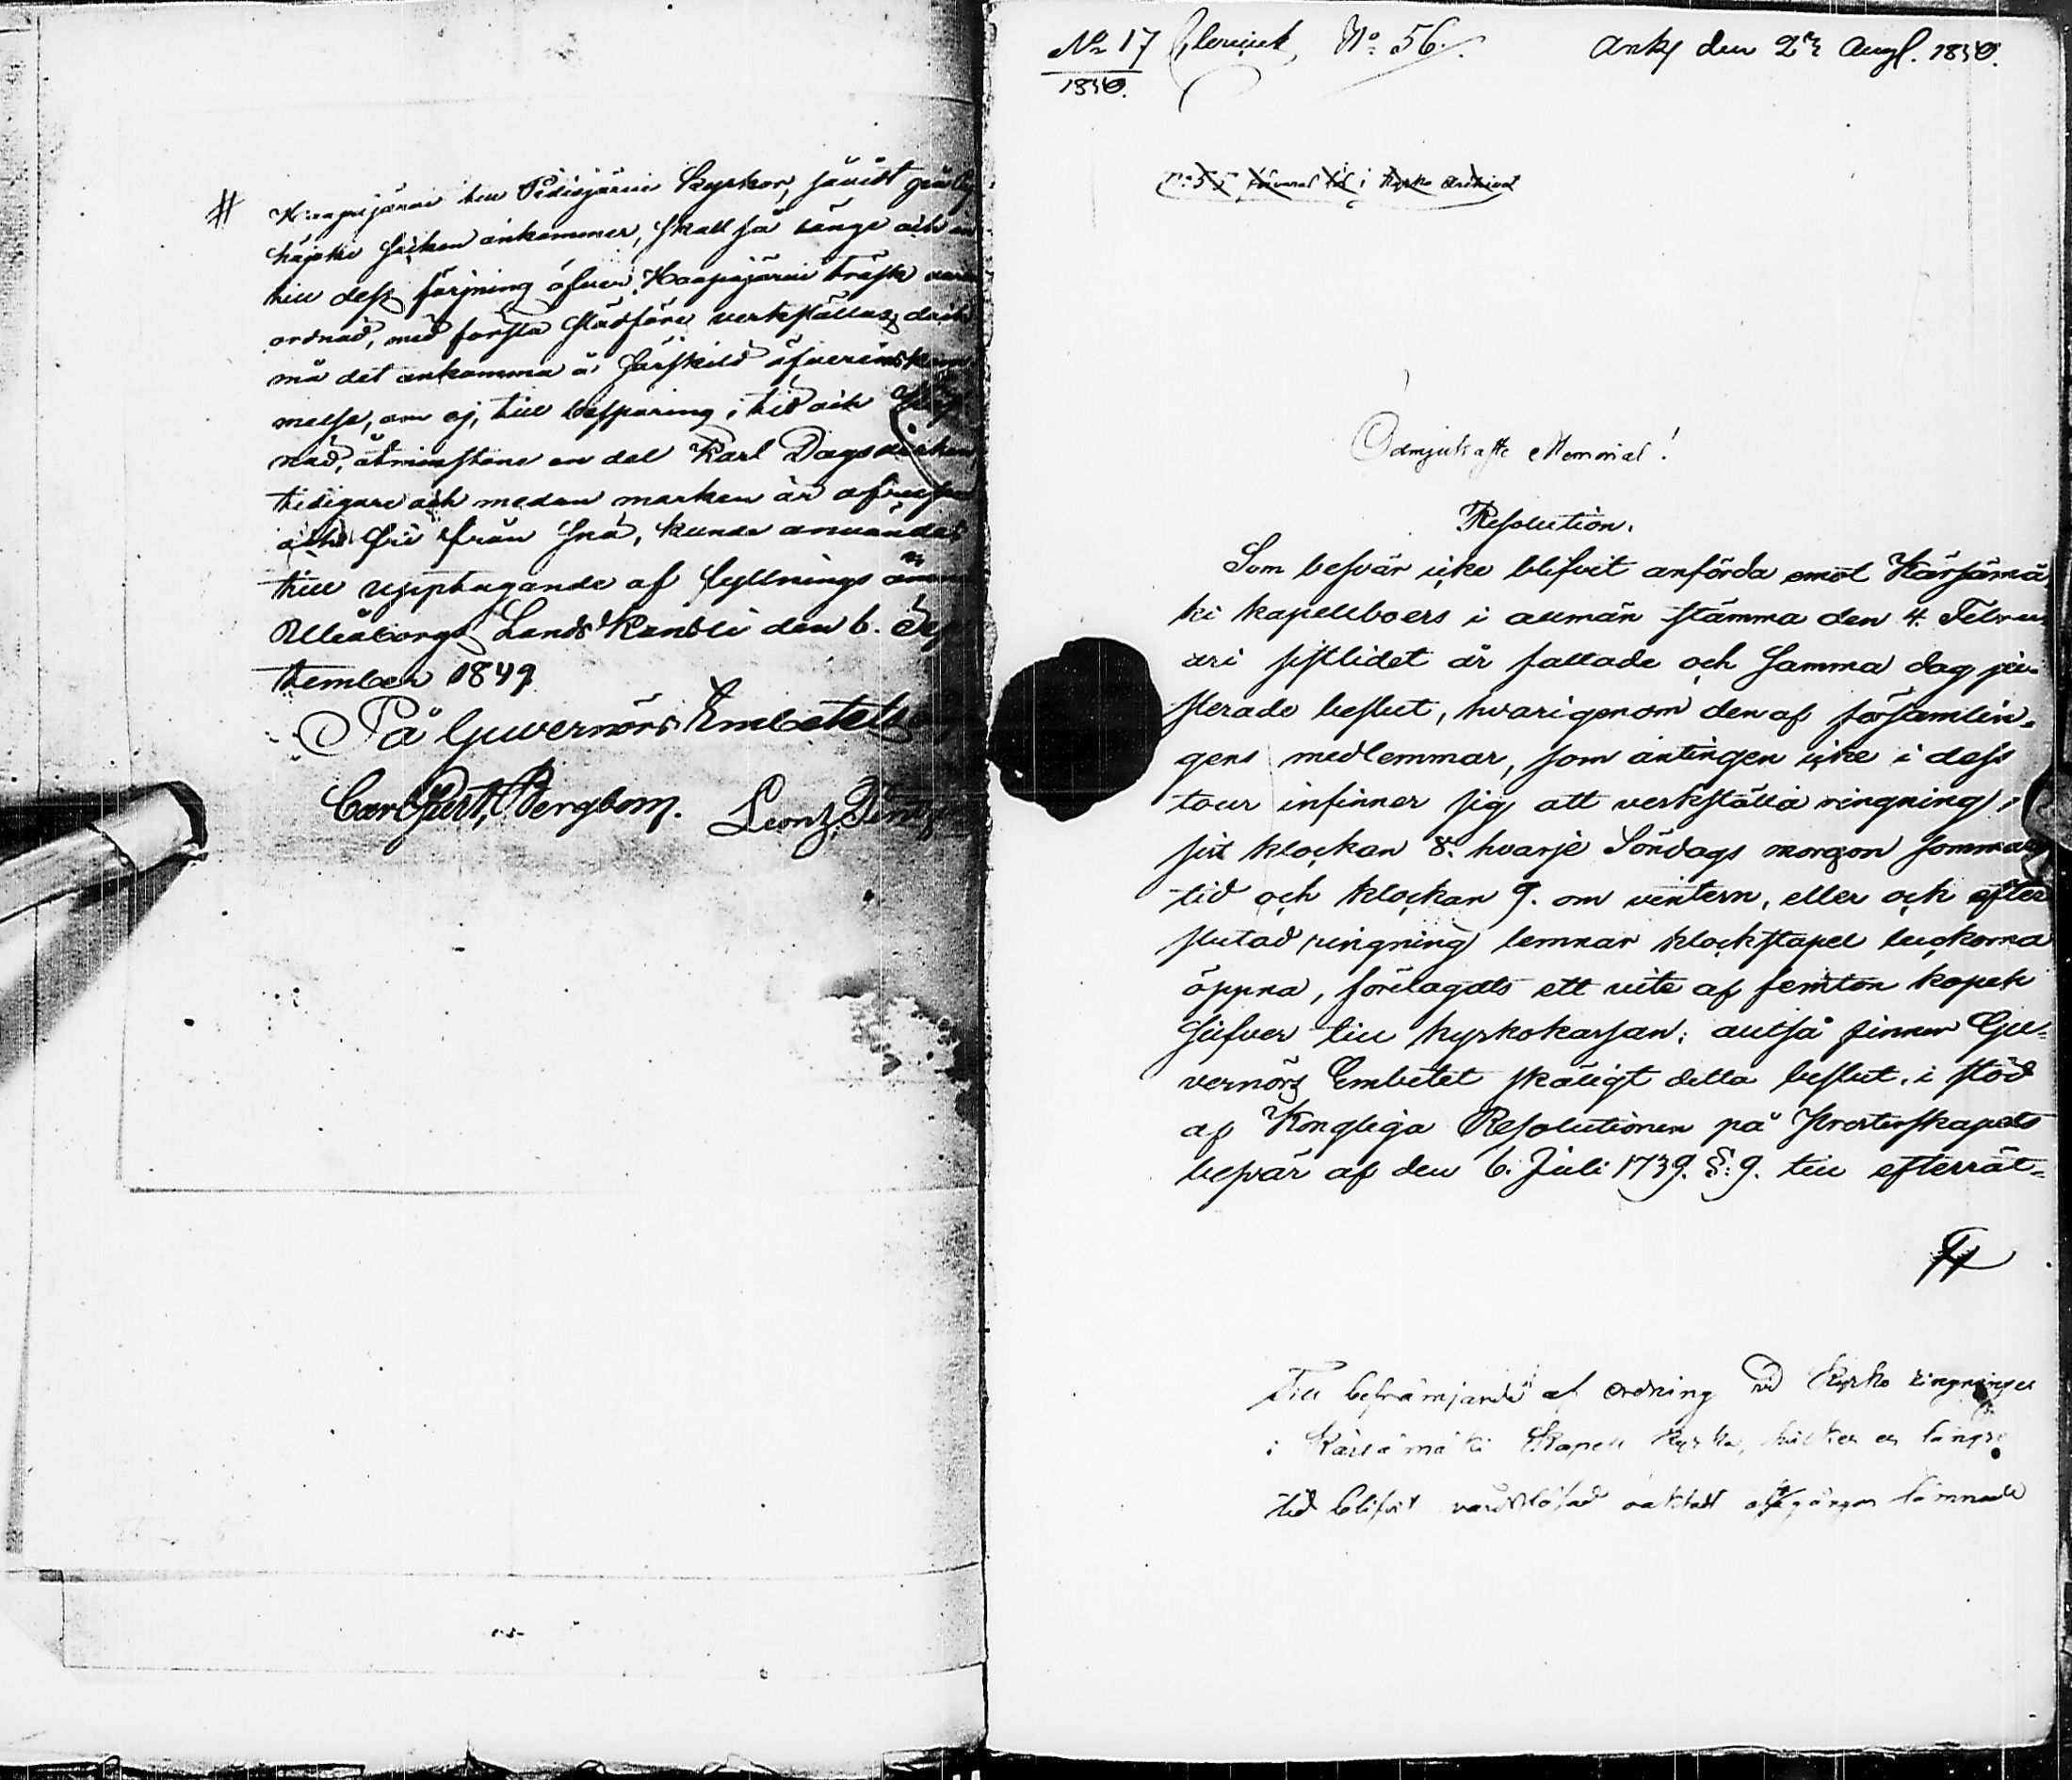 #
Haapajärvi till Pidisjärvi Kyrkor, såvidt
håjoki socken ankommer, skall så länge och
till dess färjning öfver Haapajärvi träsk
ordnad, med första slädföre verkställas; dock
må det ankomma å särskild öfverenskom
melse, om ej, till besparing i tid och
nad, åtminstone en del Karl Dagsverken
tidigare och medan marken är
och fri från snö, kunde användas
till upptagande af fyllnings
Uleåborgs Lands Kansli den 6. Sep
tember 1849
På Guvernörs Embetets
Carl Bergbom.
No 17
1850.
No 56.
Ank. den 2 Aug. 1850.
i Kyrko Archivet
Ödmjukaste Memorial!
Resolution.
Som besvär icke blifvit anförda emot Kärsämä
ki kapellboers i allmän stämma den 4. Febru
ari sistlidet år fattade och samma dag ju-
sterade beslut, hvarigenom den af församlin-
gens medlemmar, som antingen icke i dess
tour infinner sig att verkställa ringning
klockan 8. hvarje Söndags morgon sommar
tid och klockan 9. om vintern, eller och efter
slutad ringning lemnar klockstapel luckorna
öppna, förelagdts ett vite af femton kopek
Silfver till kyrkokassan; alltså finner Gu-
vernörs Embetet skäligt detta beslut, i stöd
af Kongliga Resolutionen på Presterskapets
besvär af den 6. Juli 1739. §: 9. till efterrät-
Till befrämjande af ordning vid Kyrko ringningen
i Kärsämäki Kapell Kyrka, hvilken en längre
tid blifvit vårdslösad lämnade